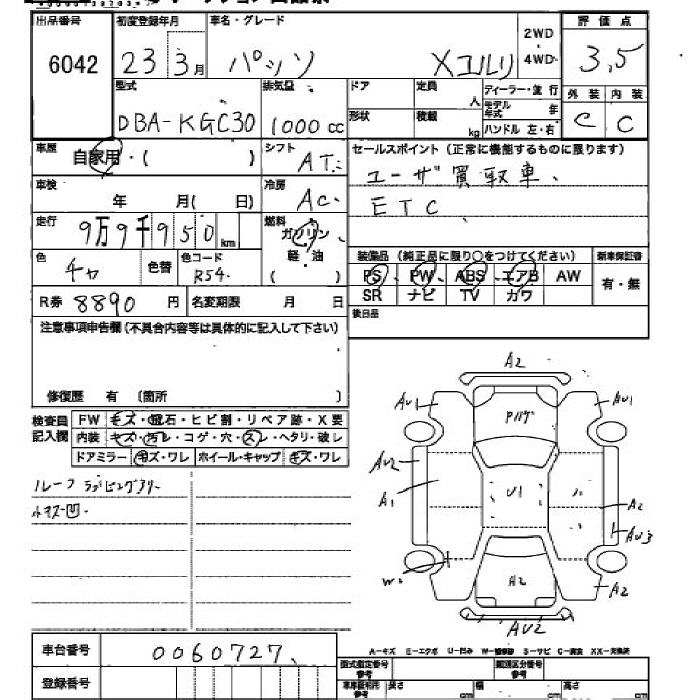 出品番号 初度登録年月 車名・グレード 2WD 4WD 評価点
6042 23 3月 パッソ Xユルリ 3,5
型式 排気量 ドア 定員 人 ディーラー・並行 外装 内装
DBA-KGC30 1000cc 形状 積載 kg モデル年式 年 C C
ハンドル 左・右
車歴 自家用・( ) シフト AT セールスポイント(正常に機能するものに限ります)
ユーザ買取車、
車検 年 月( 日) 冷房 AC ETC
走行 9万9千950km 燃料 ガソリン 軽油
装備品(純正品に限り○をつけてください) 新車保証書
色 チャ 色替 色コード R54 PS、PW、ABS、エアB AW 有・無
SR ナビ TV カワ
R券 8890円 名変期限 月 日 後日品
注意事項申告欄(不具合内容等は具体的に記入して下さい)
修復歴 有 (箇所 )
検査員記入欄 FW キズ・飛石・ヒビ割・リペア跡・X要
内装 キズ・汚レ・コゲ・穴・スレ・ヘタリ・破レ
ドアミラー キズ・ワレ ホイール・キャップ キズ・ワレ
ルーフ ラッピングアリ
小キズ凹
A2
AU1 AU1
AU2 U1
A1 A2
AU3
W A2 A2
AU2
A-キズ E-エクボ U-凹み W-補修跡 S-サビ C-腐食 XX-交換済
車台番号 0060727
型式指定番号 参考 類別区分番号 参考
登録番号 車庫証明用 参考 長さ cm 幅 cm 高さ cm